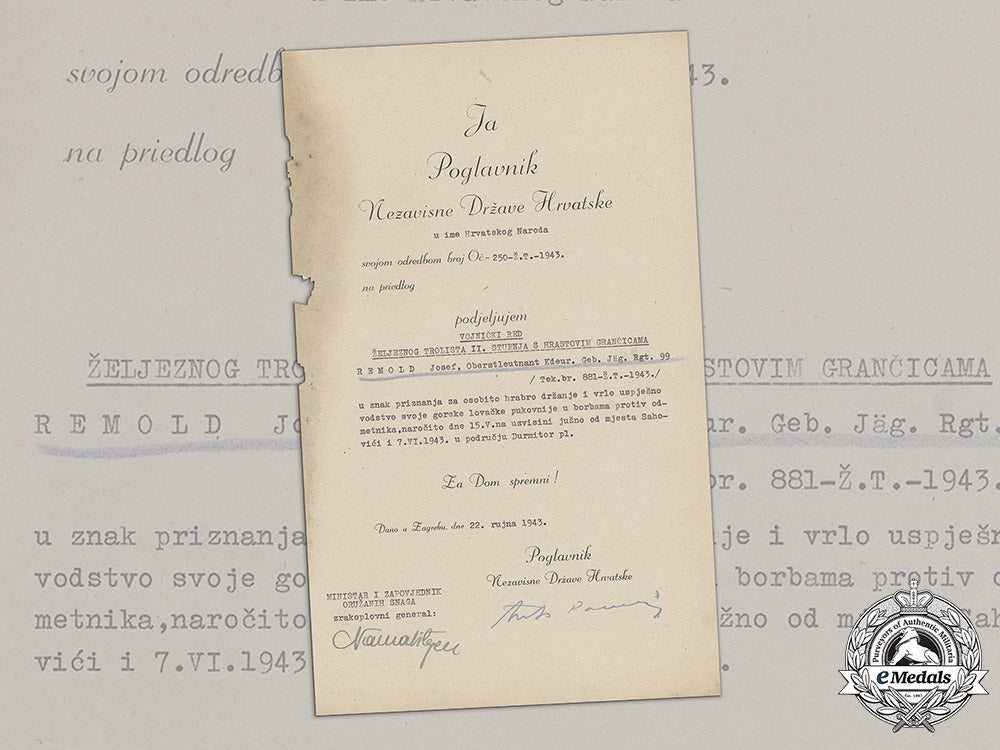 Ja
Poglavnik
Nezavisne Države Hrvatske
u ime Hrvatskog Naroda
svojom odredbom broj Oč.- 250-Ž.T.-1943.
na priedlog
podjeljujem
VOJNIČKI RED
ŽELJEZNOG TROLISTA II. STUPNJA S HRASTOVIM GRANČICAMA
R E M O L D Josef, Oberstleutnant Kdeur. Geb. Jäg. Rgt. 99
/ Tek.br. 881-Ž.T.-1943./
u znak priznanja za osobito hrabro držanje i vrlo uspješno
vodstvo svoje gorske lovačke pukovnije u borbama protiv od-
metnika,naročito dne 15.V.na uzvisini južno od mjesta Šaho-
vići i 7.VI.1943. u području Durmitor pl.
Za Dom spremni !
Dano u Zagrebu, dne 22. rujna 1943.
Poglavnik
Nezavisne Države Hrvatske
MINISTAR I ZAPOVJEDNIK
ORUŽANIH SNAGA
zrakoplovni general:
svojom odredb
43.
na priedlog
ŽELJEZNOG TRO
STOVIM GRANČICAMA
R E M O L D Jo
ur. Geb. Jäg. Rgt.
br. 881-Ž.T.-1943.
u znak priznanja
je i vrlo uspješn
vodstvo svoje go
borbama protiv o
metnika,naročito
žno od m
vići i 7.VI.1943
Purveyors of Authentic Militaria
eMedals